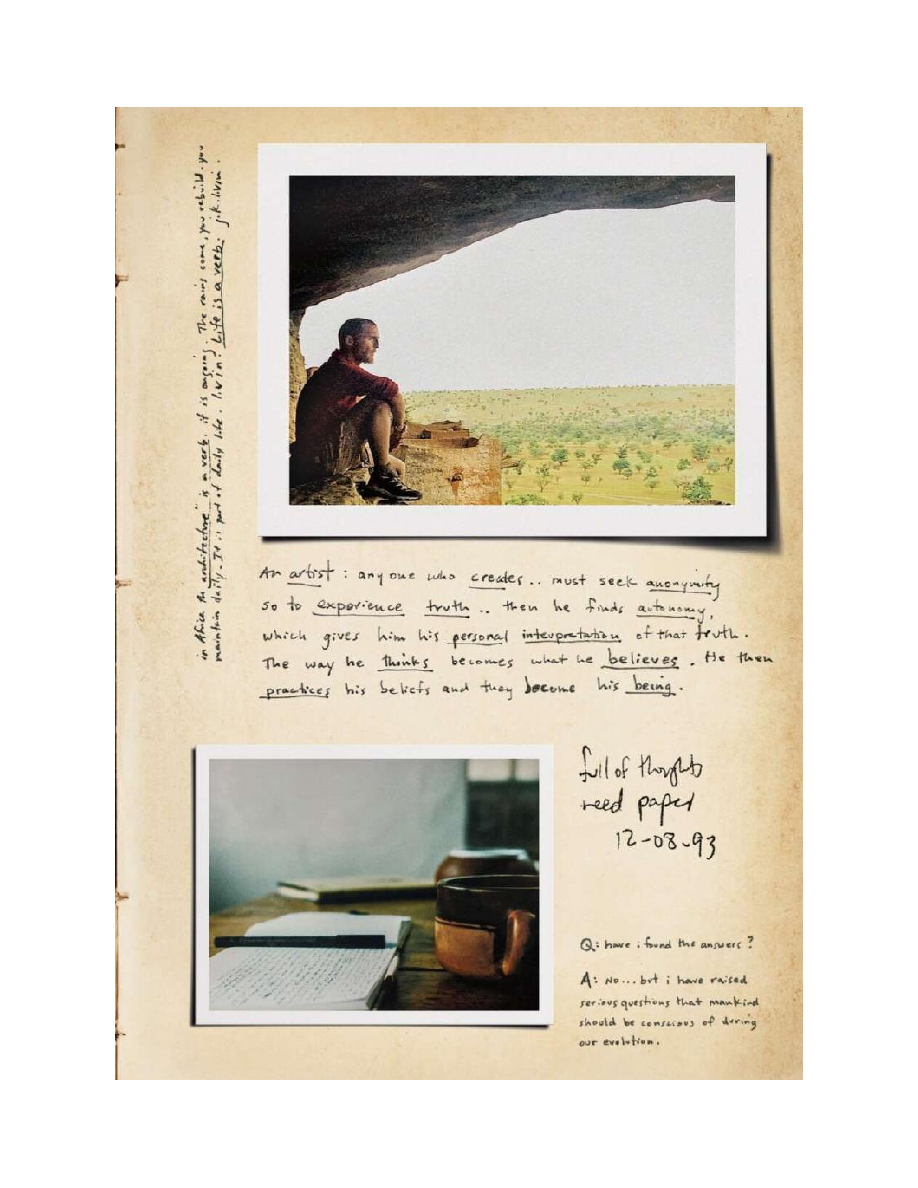 in Africa the "architecture" is a verb. it is ongoing. The rains come, you rebuild. you
maintain daily. It is part of daily life. livin. Life is a verb. j.k. livin.
An artist : anyone who creates.. must seek anonymity
so to experience truth .. then he finds autonomy,
which gives him his personal interpretation of that truth.
The way he thinks becomes what he believes. He then
practices his beliefs and they become his being.
full of thoughts
need paper
12-08-93
Q: have i found the answers?
A: No... but i have raised
serious questions that mankind
should be conscious of during
our evolution.